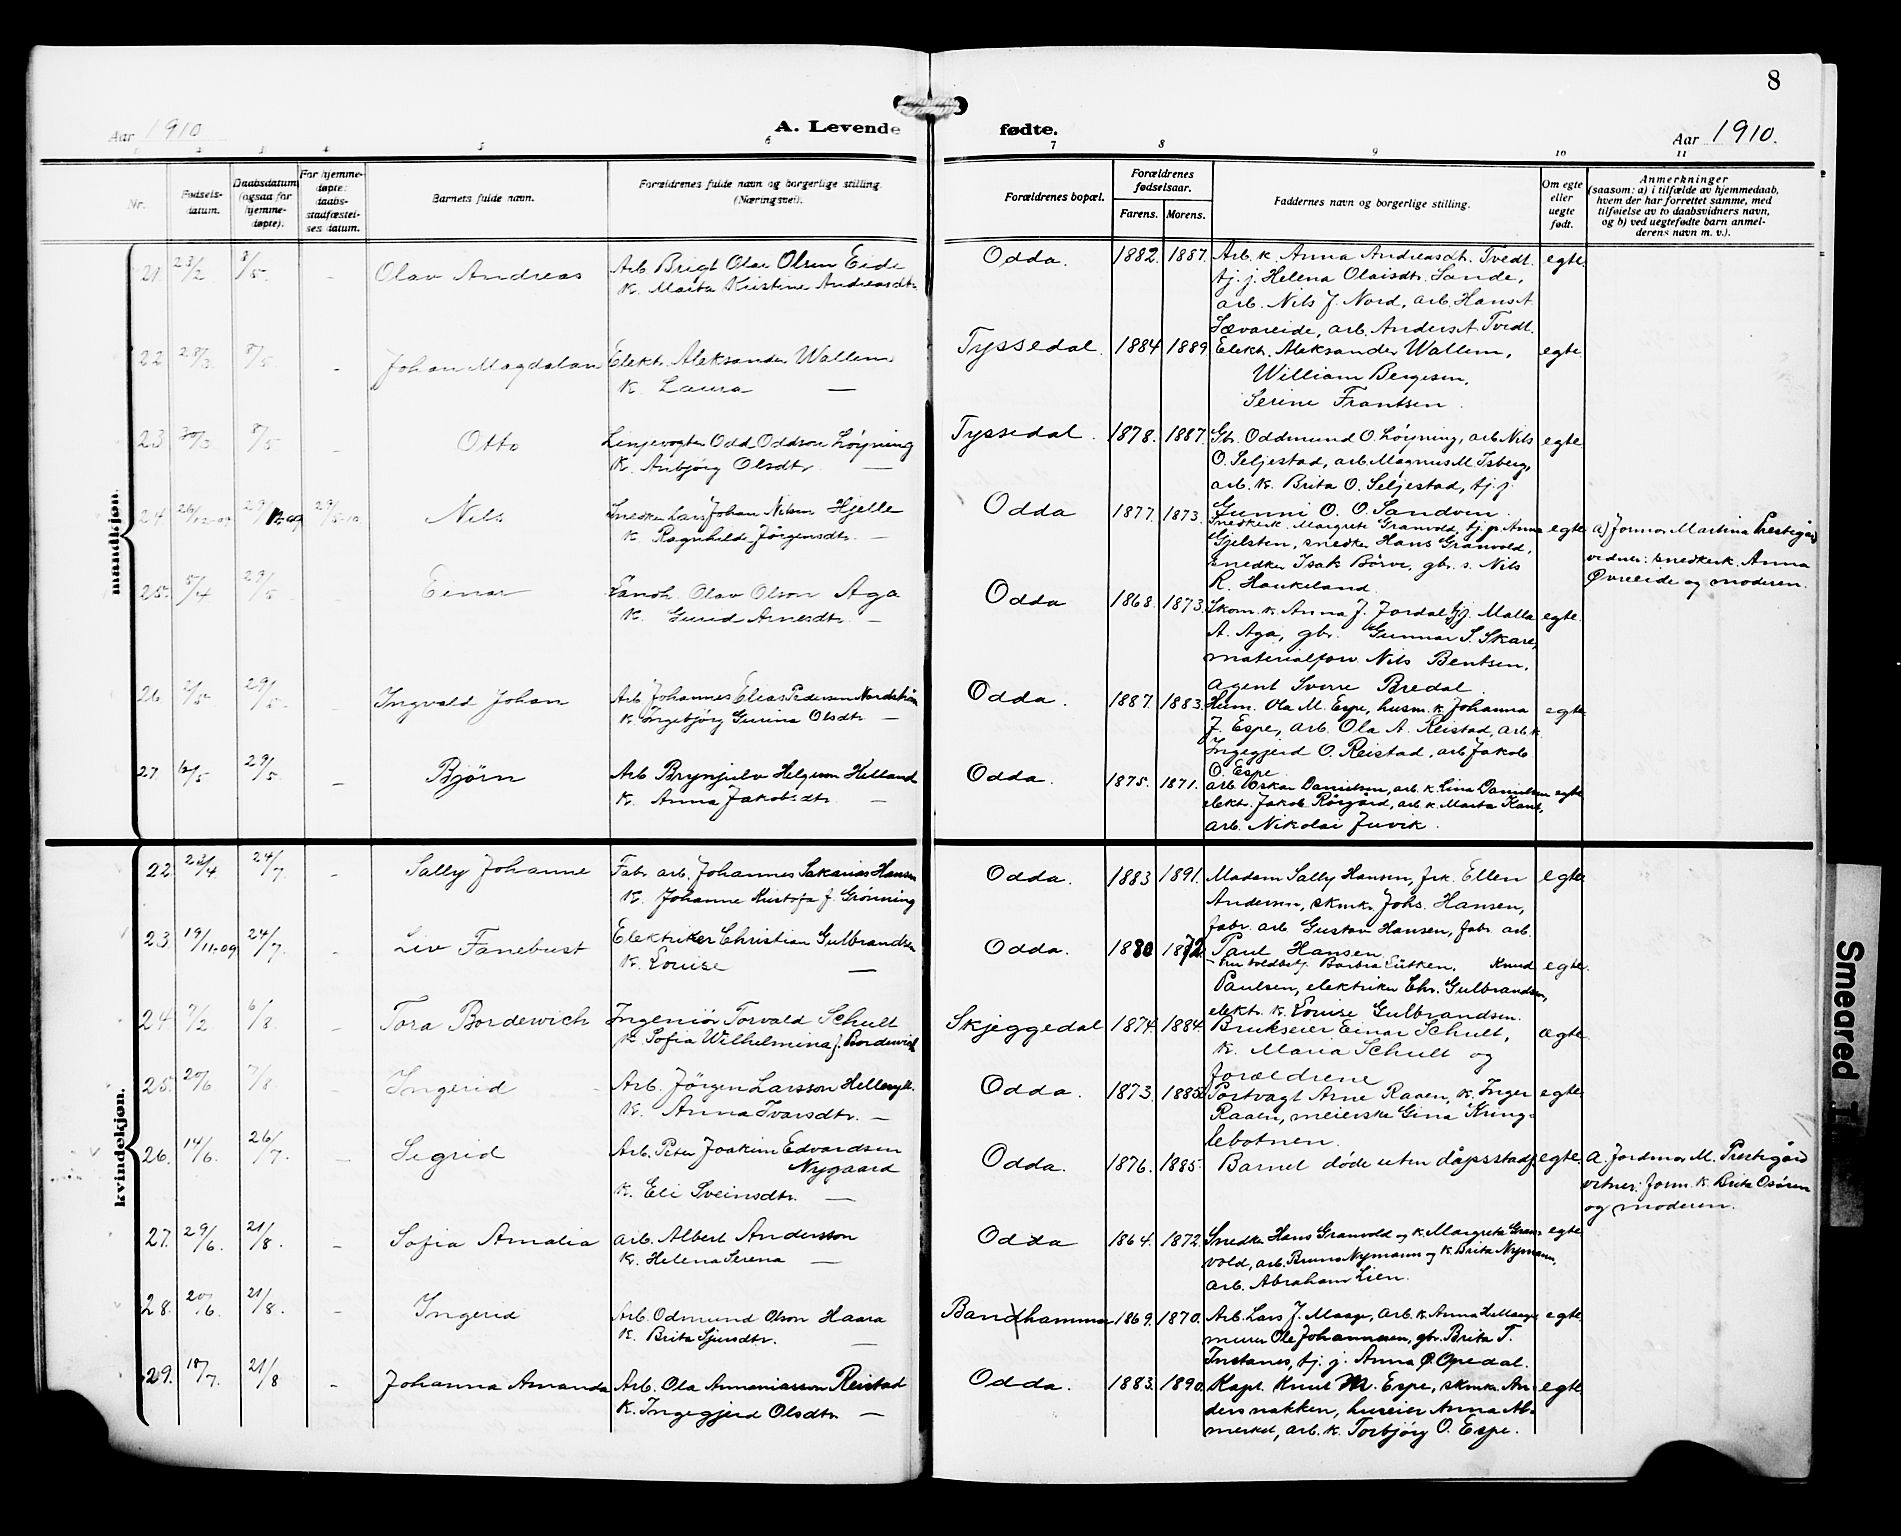 8
Aar 1910
A. Levende
fødte.
Aar 1910.
1 2 3 4 5 6 7 8 9 10 11
Nr.
Fødsels-
datum.
Daabsdatum
(ogsaa for
hjemme-
døpte).
For hjemme-
døpte:
daabs-
stadfæstel-
ses datum.
Barnets fulde navn.
Forældrenes fulde navn og borgerlige stilling.
(Næringsvei).
Forældrenes bopæl.
Forældrenes
fødselsaar.
Farens. Morens.
Faddernes navn og borgerlige stilling.
Om egte
eller
uegte
født.
Anmerkninger
(saasom: a) i tilfælde av hjemmedaab,
hvem der har forrettet samme, med
tilføielse av to daabsvidners navn,
og b) ved uegtefødte barn anmel-
derens navn m. v.).
mandkjøn.
21. 23/2 8/5 - Olav Andreas
Arb. Brigt Olai Olsen Eide
K. Marta Kristine Andreasdtr.
Odda. 1882. 1887.
Arb. k. Anna Andreasdt. Tvedt.
tj. j. Helena Olaisdtr. Sande,
arb. Nils J. Nord, arb. Hans A.
Sævareide, arb. Anders A. Tvedt.
egte.
22 28/3 8/5 - Johan Magdalon
Elektr. Aleksander Wallem
K. Laura —
Tyssedal. 1884 1889
Elektr. Aleksander Wallem,
William Bergesen,
Serine Frantsen.
egte.
23 30/3 8/5 - Otto
Linjevogter Odd Oddson Löyning
K. Anbjörg Olsdtr. —
Tyssedal. 1878. 1887.
Gb. Oddmund O. Löyning, arb. Nils
O. Seljestad, arb. Magnus M. Isberg,
arb. k. Brita O. Seljestad, tj. j.
Gunni O. O. Sandven.
egte
24 26/12-09 29/12-09 29/5-10 Nils
Snedker Lars Johan Nilsen Hjelle
K. Ragnhilda Jörgensdtr. —
Odda 1877. 1873.
Snedkerk. Margrete Granvold, tj. p. Anna
Gjelsten, snedker Hans Granvold,
snedker Isak Börve, gbr. s. Nils
R. Haukeland.
egte
a) Jormor Martina Prestegård
vidner: snedkerk. Anna
Øvreeide og moderen.
25. 5/4 29/5 - Einar
Landh. Olav Olson Aga
K. Gurid Arnesdtr. —
Odda 1868. 1873.
Skom. k. Anna J. Jordal, tj. j. Malla
A. Aga, gbr. Gunnar S. Skare,
materialforv. Nils Bentsen,
agent Sverre Bredal.
egte.
26 2/5 29/5. - Ingvald Johan
Arb. Johannes Elias Pedersen Nordström
K. Ingebjörg Gurina Olsdtr. —
Odda. 1887. 1883.
Husm. Ola M. Espe, husm. k. Johanna
J. Espe, arb. Ola A. Reistad, arb. k.
Ingegjerd O. Reistad, arb. Jakob
O. Espe.
egte
27. 12/5 29/5 - Bjørn
Arb. Brynjulv Helgeson Helland
K. Anna Jakobsdtr. —
Odda. 1875. 1871.
arb. Oskar Danielsen, arb. k. Lina Danielsen
elektr. Jakob Rörgård, arb. k. Marta Kant,
arb. Nikolai Juvik.
egte
kvindekjøn.
22. 23/4. 24/7 - Sally Johanne
Fabr. arb. Johannes Sakarias Hansen
K. Johanne Kristofa f. Grönning
Odda. 1883 1891.
Madam Sally Hansen, frk. Ellen
Andersen, skmkr. Johs. Hansen,
fabr. arb. Gustav Hansen, fabr. arb.
Paul Hansen.
egte
23. 19/11-09 24/7. - Liv Fanebust
Elektriker Christian Gulbrandsen
K. Louise —
Odda. 1880 1872
Borbra Lütken, Knud
Paulsen, elektriker Chr. Gulbrandsen,
elektr. k. Louise Gulbrandsen.
egte.
24 7/2 6/8 - Tora Bordewich
Ingeniör Torvald Schult
K. Sofia Wilhelmina f. Bordewich
Skjeggedal 1874. 1884.
Brukseier Einar Schult,
K. Maria Schult og
forældrene
ægte.
25. 20/6 7/8. - Ingerid
Arb. Jörgen Larsson Hellesylt.
K. Anna Ivarsdtr. —
Odda. 1873. 1885.
Portvagt Arne Raaen, k. Inger
Raaen, meierske Gina Kring-
lebotnen.
egte
26. 14/6. 26/7. - Sigrid
Arb. Peter Joakim Edvardsen
Nygaard
K. Eli Sveinsdtr. —
Odda. 1876. 1885.
Barnet döde uten dåpsstadf.
egte.
a. Jordmor M. Prestegård
vitner: Jorm. k. Brita Osören
og moderen.
27. 29/6. 21/8. - Sofia Amalia
arb. Albert Andersson
K. Helena Serena —
Odda 1864. 1872.
Snedker Hans Granvold og k. Margreta Gran-
vold, arb. Bruno Nymann og k. Brita Nymann,
arb. Abraham Lien.
egte
28. 20/6. 21/8. - Ingerid
Arb. Odmund Olson Haara
K. Brita Sjursdtr. —
Bandhammar 1869. 1870.
Arb. Lars J. Maage, arb. k. Anna H. Maage
murer Ole Johannesen, gbr. Brita T.
Instanes, tj. j. Anna O. Opedal.
egte
29. 18/7. 21/8 - Johanna Amanda
Arb. Ola Ammaniasson Reistad
K. Ingegjerd Olsdtr. —
Odda. 1883. 1890.
Kapt. Knut M. Espe, skmkr. An-
ders nakken, huseier Anna Al-
merket, arb. k. Torbjörg O. Espe.
egte
Smeared